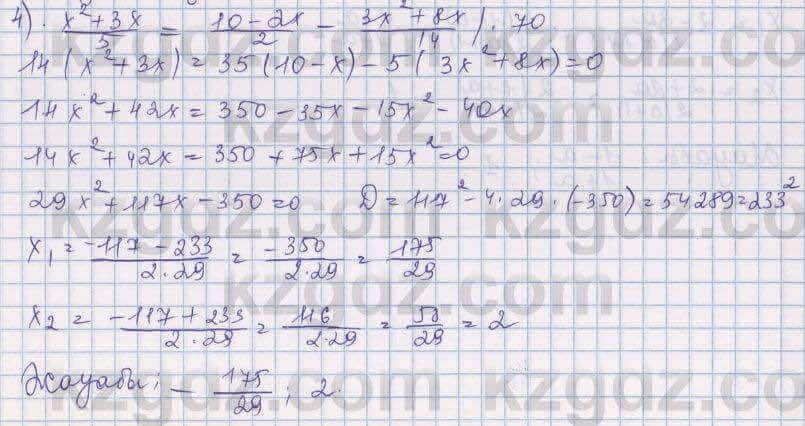 4). (x²+3x)/5 = (10-2x)/2 - (3x²+8x)/14 | · 70
14(x²+3x) = 35(10-x) - 5(3x²+8x) = 0
14x²+42x = 350-35x-15x²-40x
14x²+42x = 350+75x+15x²=0
29x²+117x-350=0 D=117²-4·29·(-350)=54289=233²
x₁ = (-117-233)/(2·29) = (-350)/(2·29) = 175/29
x₂ = (-117+233)/(2·29) = 116/(2·29) = 58/29 = 2
Жауабы: - 175/29; 2.
kzgdz.com